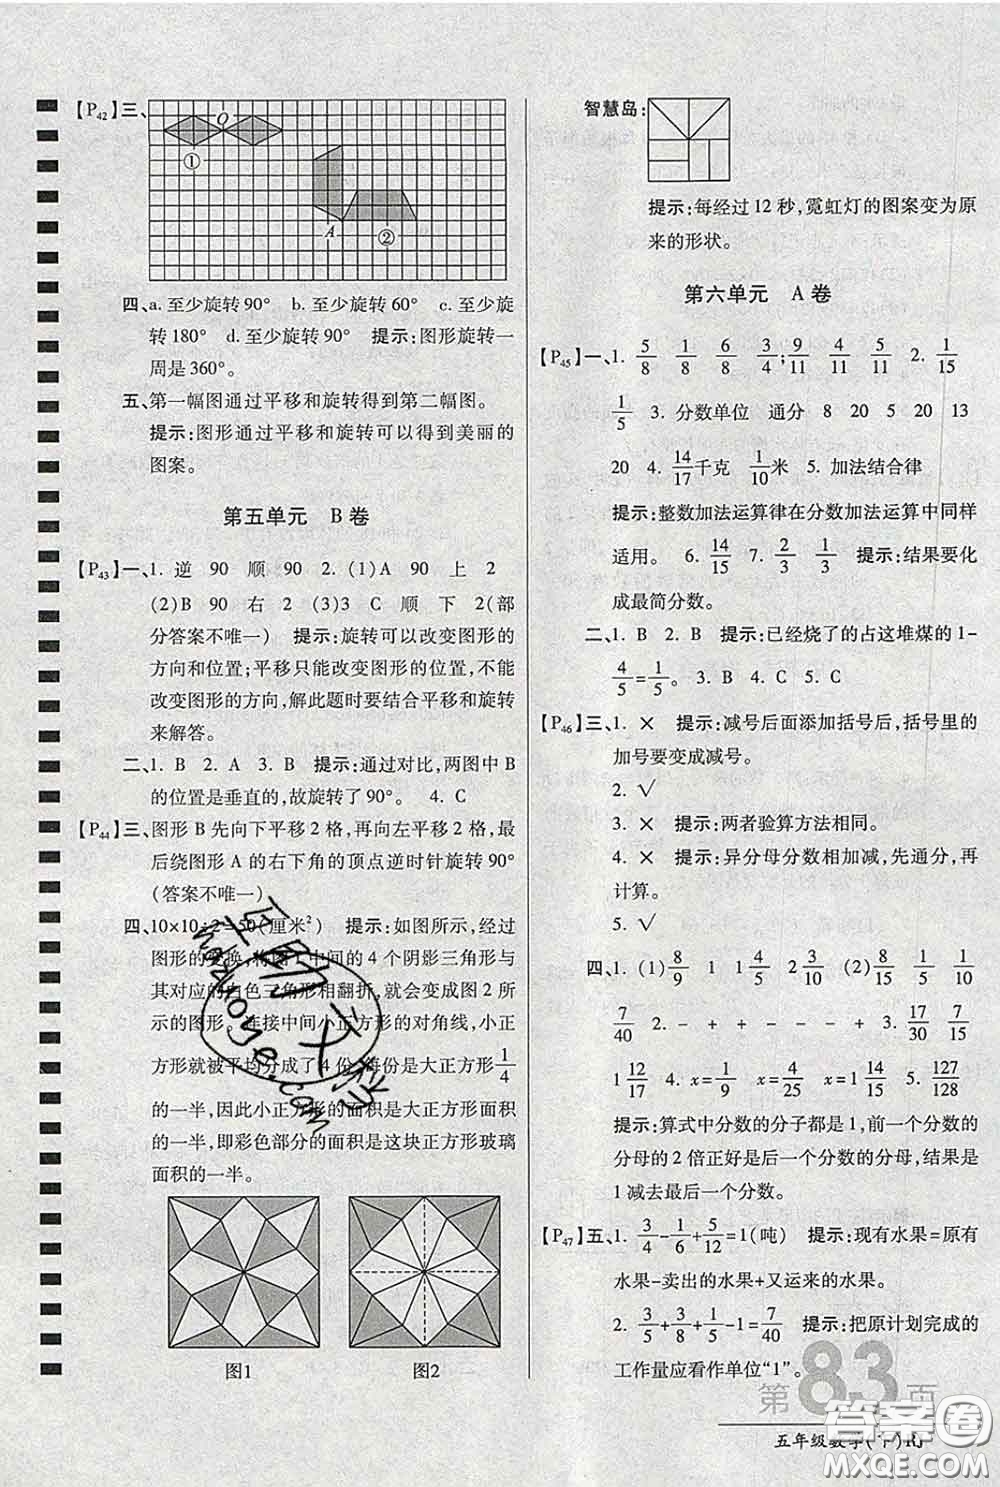 【P42】三、
O
①
A
②
四、a. 至少旋转 90° b. 至少旋转 60° c. 至少旋
转 180° d. 至少旋转 90° 提示:图形旋转一
周是 360°。
五、第一幅图通过平移和旋转得到第二幅图。
提示:图形通过平移和旋转可以得到美丽的
图案。
第五单元 B 卷
【P43】一、1. 逆 90 顺 90 2. (1)A 90 上 2
(2)B 90 右 2 (3)3 C 顺 下 2(部
分答案不唯一) 提示:旋转可以改变图形的
方向和位置;平移只能改变图形的位置,不能
改变图形的方向,解此题时要结合平移和旋转
来解答。
二、1. B 2. A 3. B 提示:通过对比,两图中 B
的位置是垂直的,故旋转了 90°。 4. C
【P44】三、图形 B 先向下平移 2 格,再向左平移 2 格,最
后绕图形 A 的右下角的顶点逆时针旋转 90°
(答案不唯一)
四、10×10÷2=50(厘米²) 提示:如图所示,经过
图形的变换,将图 1 中间的 4 个阴影三角形与
其对应的白色三角形相翻折,就会变成图 2 所
示的图形。连接中间小正方形的对角线,小正
方形就被平均分成了 4 份,每份是大正方形 1/4
的一半,因此小正方形的面积是大正方形面积
的一半,即彩色部分的面积是这块正方形玻璃
面积的一半。
图1 图2
智慧岛:
提示:每经过 12 秒,霓虹灯的图案变为原
来的形状。
第六单元 A 卷
【P45】一、1. 5/8 1/8 6/8 3/4;9/11 4/11 5/11 2. 1/15
1/5 3. 分数单位 通分 8 20 5 20 13
20 4. 14/17千克 1/10米 5. 加法结合律
提示:整数加法运算律在分数加法运算中同样
适用。 6. 14/15 7. 2/3 1/3 提示:结果要化
成最简分数。
二、1. B 2. B 提示:已经烧了的占这堆煤的 1-
4/5=1/5。 3. B 4. C 5. C
【P46】三、1. × 提示:减号后面添加括号后,括号里的
加号要变成减号。
2. √
3. × 提示:两者验算方法相同。
4. × 提示:异分母分数相加减,先通分,再
计算。
5. √
四、1. (1) 8/9 1 1 4/5 2 3/10 (2) 8/15 1/5 1/10
7/40 2. - + + - - - + 3. 17/30 7/15
1 12/17 4. x=1/9 x=4/25 x=1 14/15 5. 127/128
提示:算式中分数的分子都是 1,前一个分数的
分母的 2 倍正好是后一个分数的分母,结果是
1 减去最后一个分数。
【P47】五、1. 3/4-1/6+5/12=1(吨) 提示:现有水果=原有
水果-卖出的水果+又运来的水果。
2. 3/5+3/8+1/5-1=7/40 提示:把原计划完成的
工作量应看作单位“1”。
第 83 页
五年级数学(下)RJ
答案圈
MXQE.COM